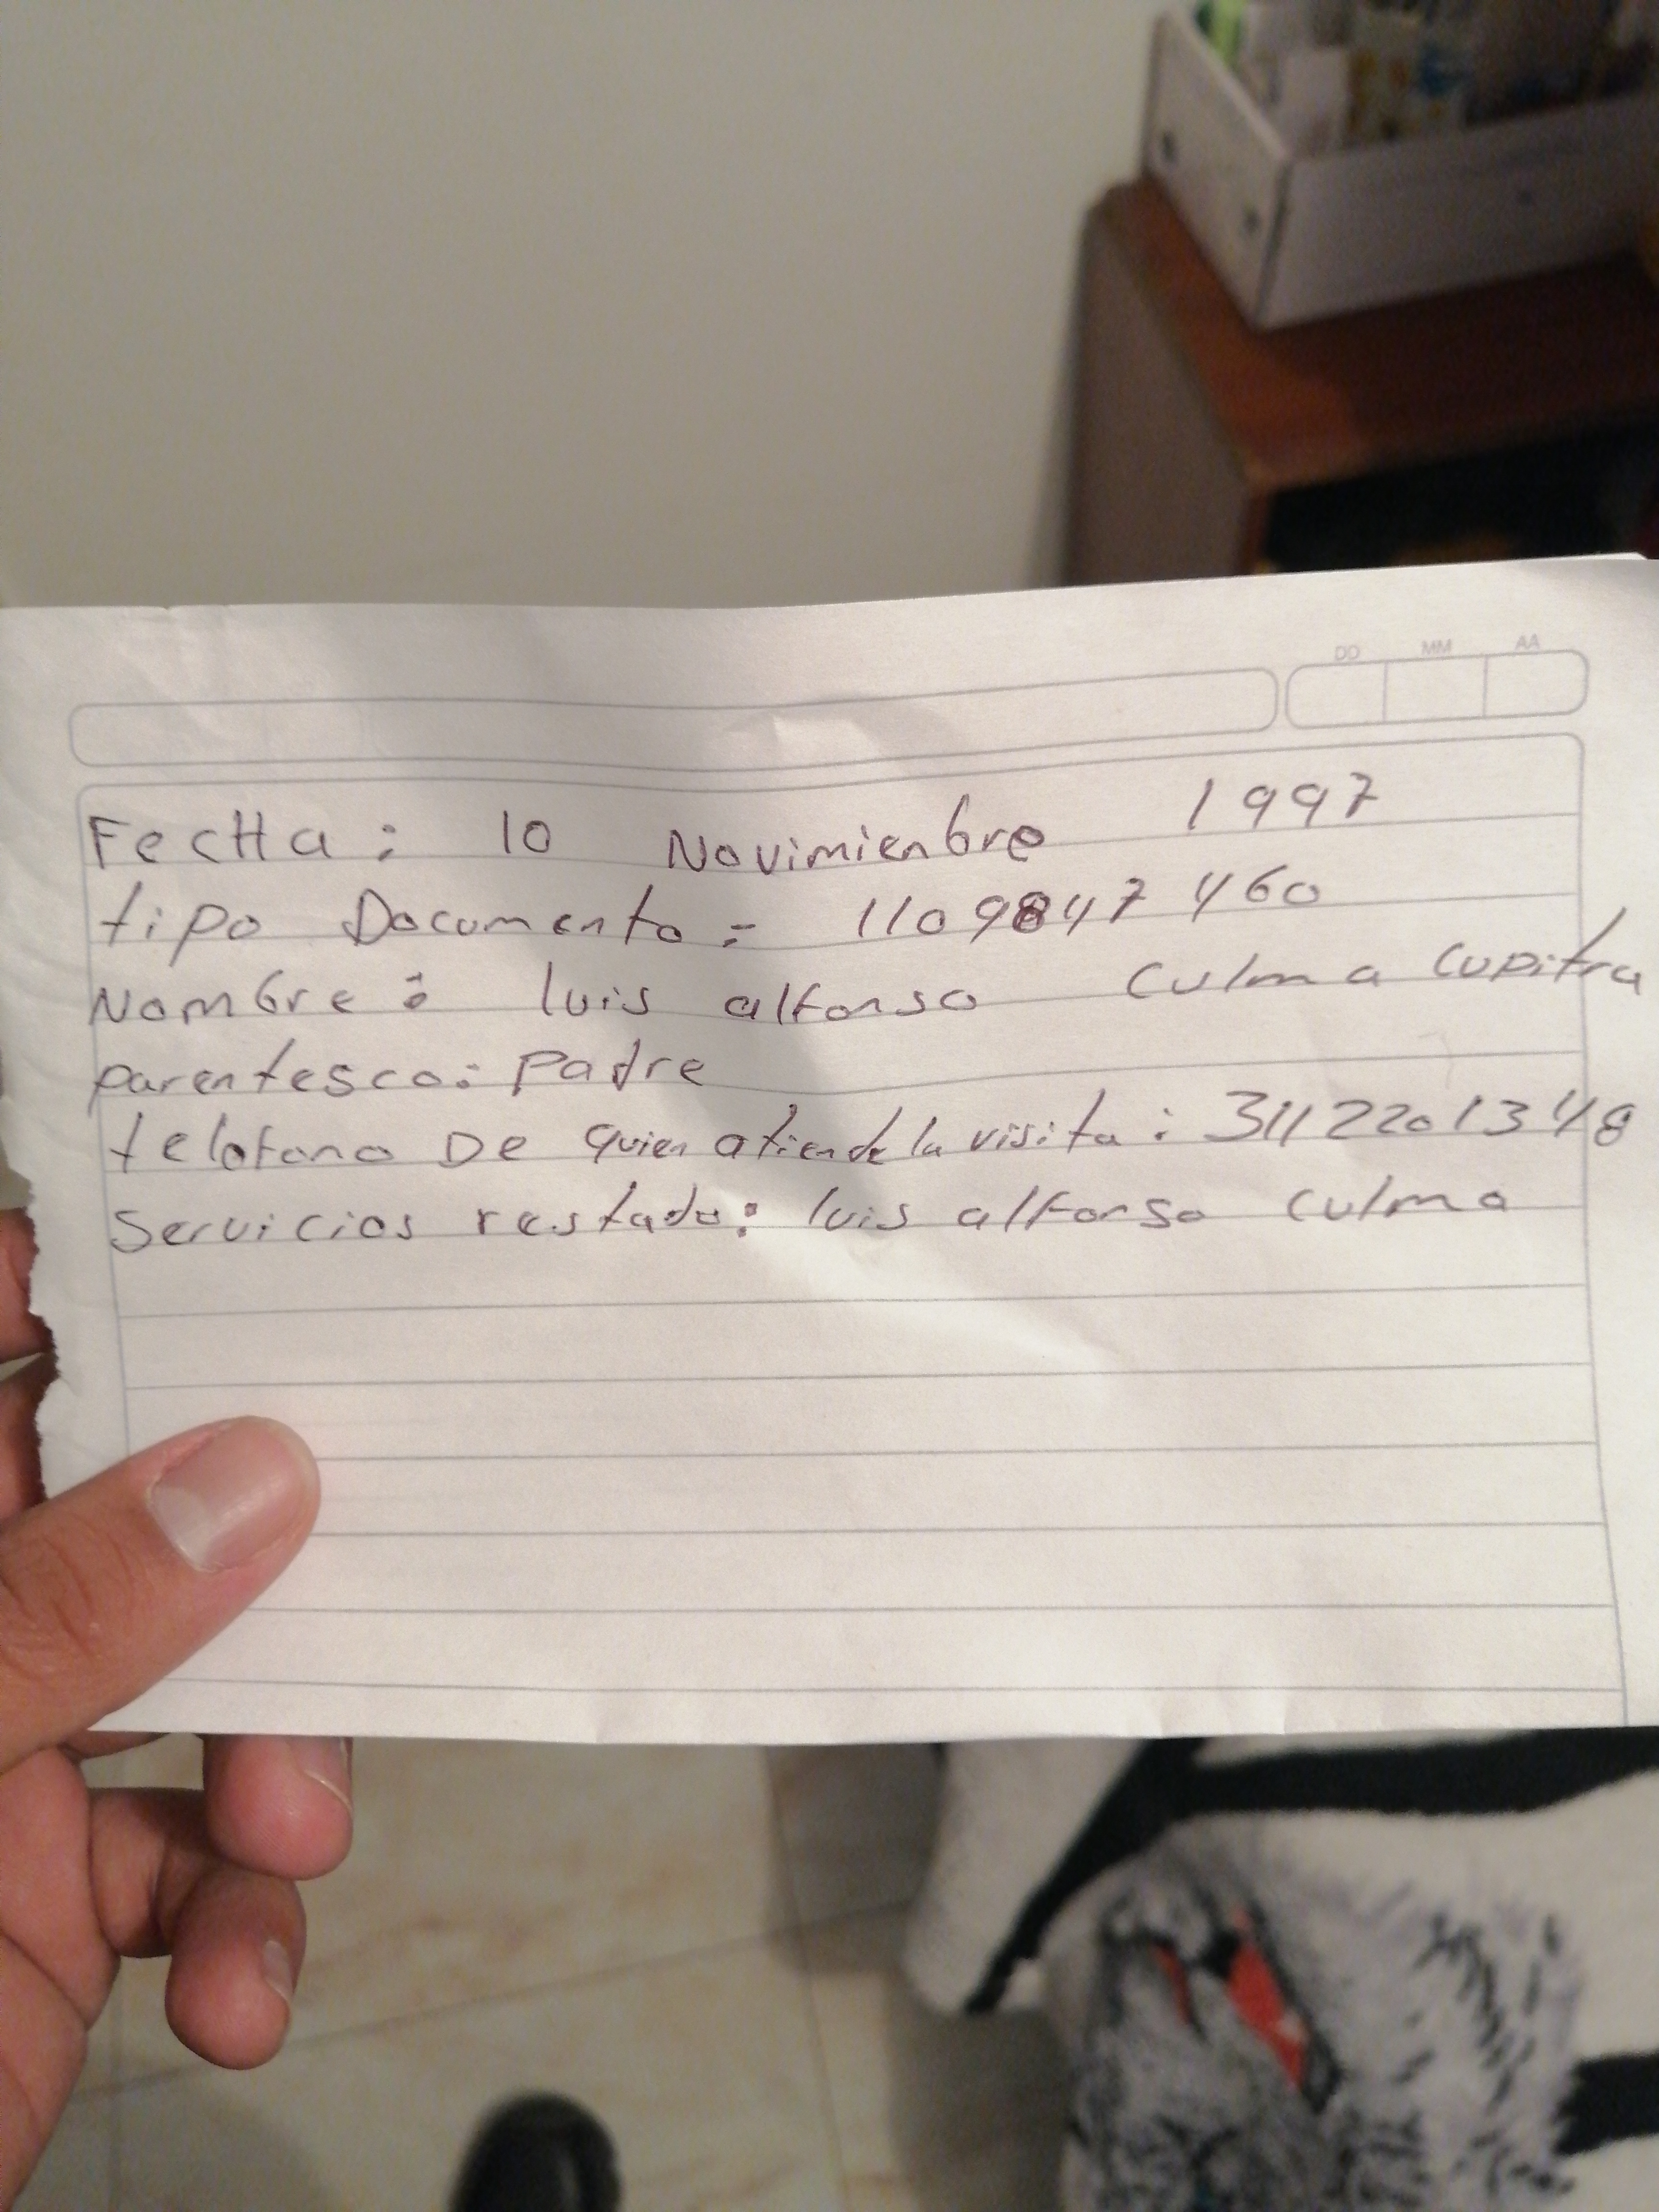 DD MM AA
FecHa: 10 Novimienbre 1997
tipo Documento: 1109847460
Nombre: luis alfonso Culma Cupitra
parentesco: Padre
telofono De quien atiende la visita: 3112201348
Servicios restado: luis alfonso Culma